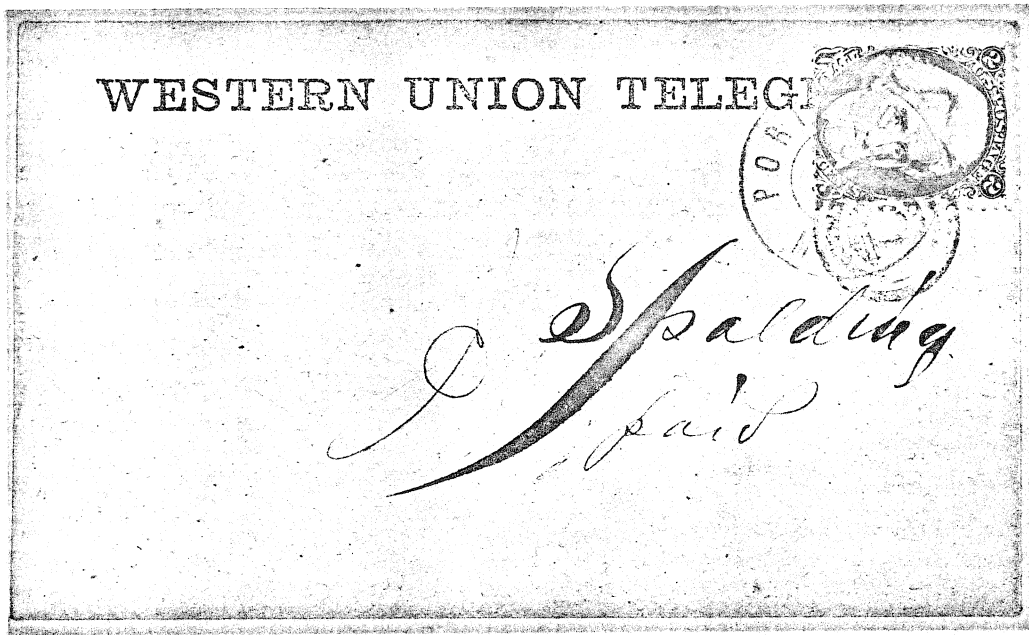 WESTERN UNION TELEG
POR
Spalding
paid